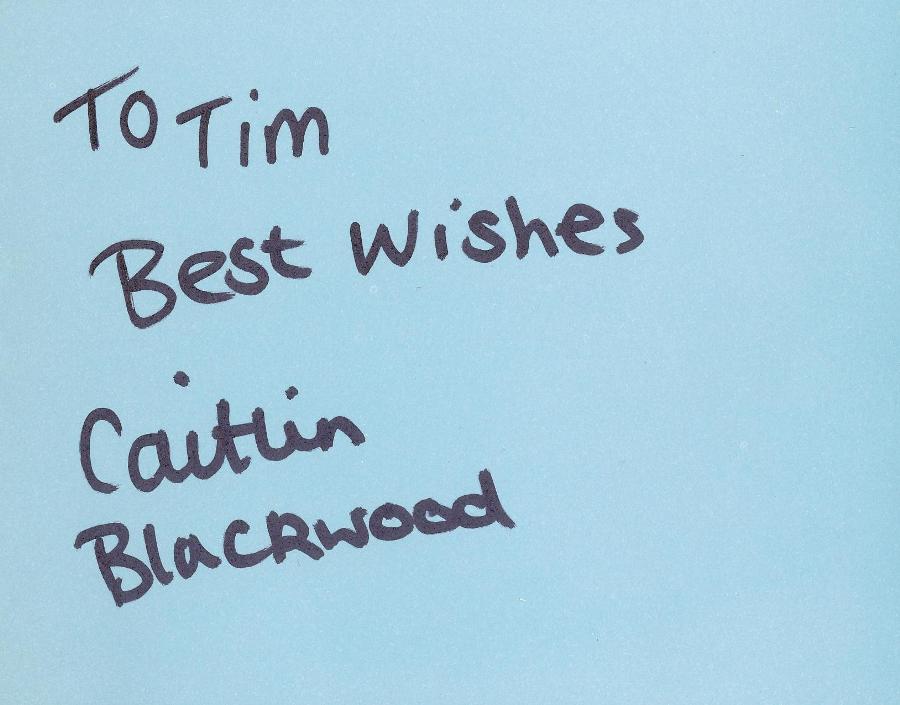 To Tim
Best Wishes
Caitlin
Blackwood